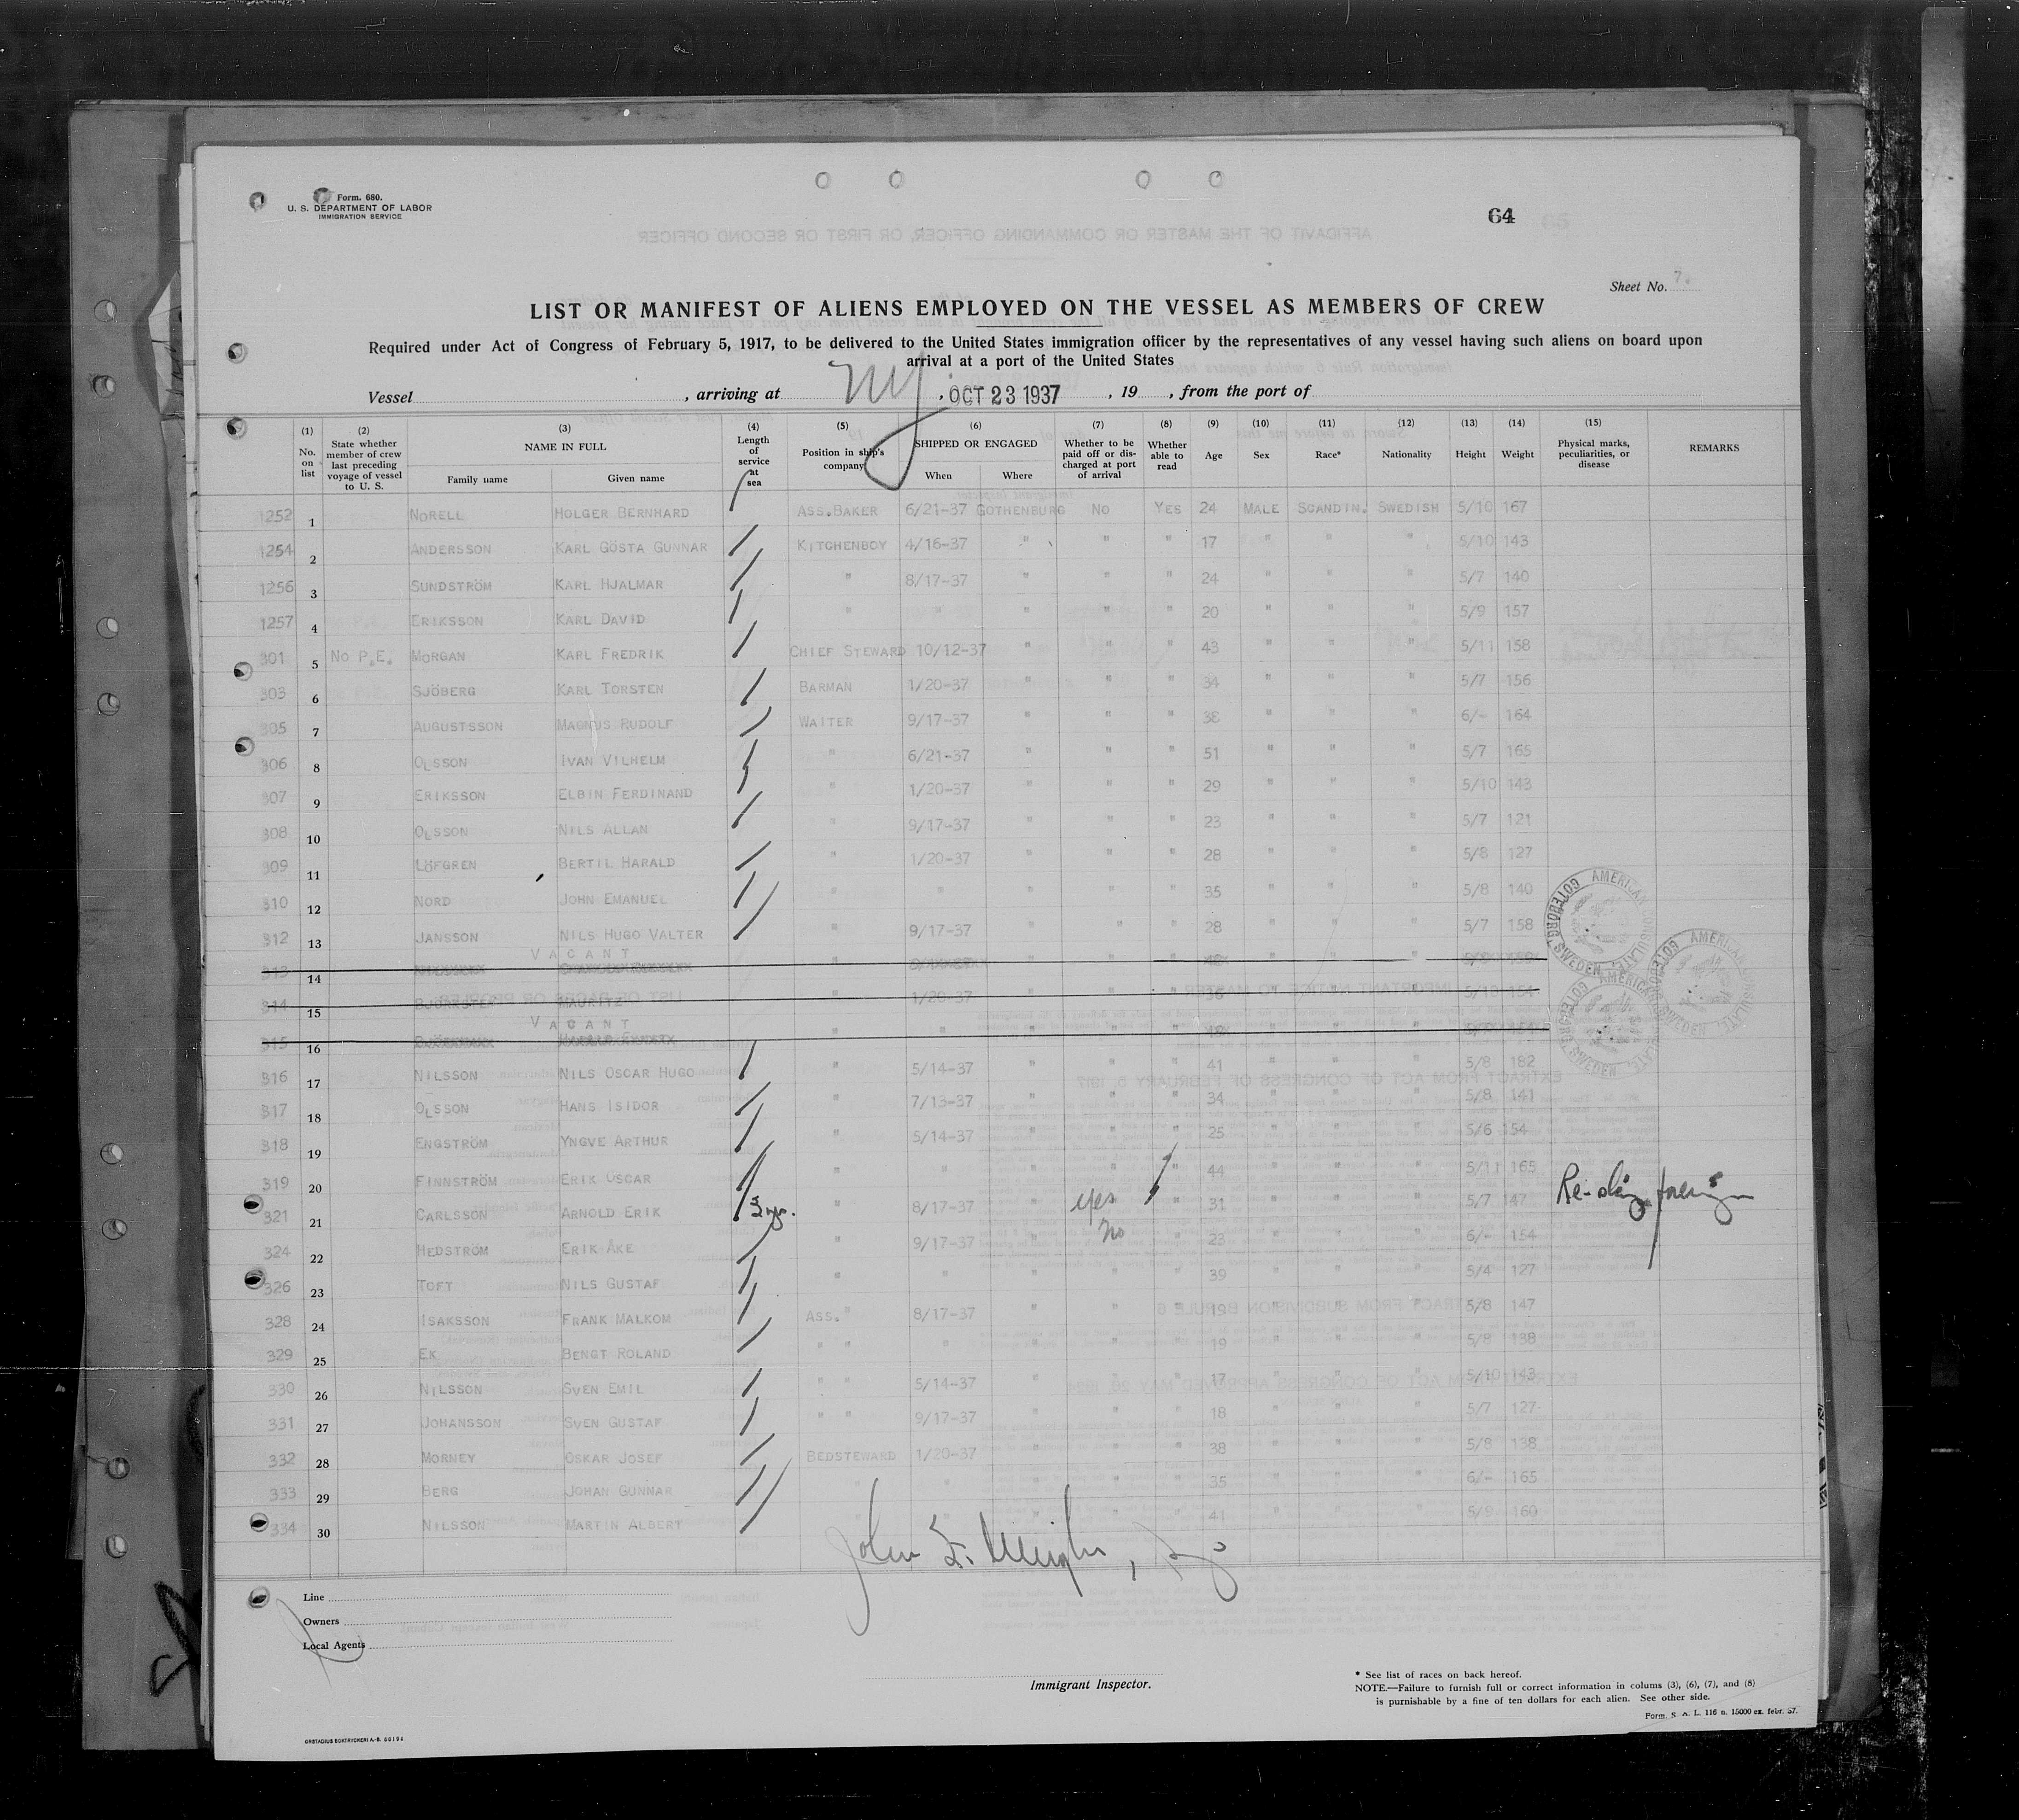 Form. 680.
U. S. DEPARTMENT OF LABOR
IMMIGRATION SERVICE
64
Sheet No. 7.
LIST OR MANIFEST OF ALIENS EMPLOYED ON THE VESSEL AS MEMBERS OF CREW
Required under Act of Congress of February 5, 1917, to be delivered to the United States immigration officer by the representatives of any vessel having such aliens on board upon
arrival at a port of the United States
Vessel , arriving at NY , OCT 23 1937 , 19 , from the port of
(1) No. on list (2) State whether member of crew last preceding voyage of vessel to U. S. (3) NAME IN FULL Family name Given name (4) Length of service at sea (5) Position in ship's company (6) SHIPPED OR ENGAGED When Where (7) Whether to be paid off or discharged at port of arrival (8) Whether able to read (9) Age (10) Sex (11) Race* (12) Nationality (13) Height (14) Weight (15) Physical marks, peculiarities, or disease REMARKS
1252 1 NORELL HOLGER BERNHARD ASS.BAKER 6/21-37 GOTHENBURG NO YES 24 MALE SCANDIN. SWEDISH 5/10 167
1254 2 ANDERSSON KARL GÖSTA GUNNAR KITCHENBOY 4/16-37 " " " 17 " " " 5/10 143
1256 3 SUNDSTRÖM KARL HJALMAR " 8/17-37 " " " 24 " " " 5/7 140
1257 4 ERIKSSON KARL DAVID " " " " " 20 " " " 5/9 157
301 5 NO P.E. MORGAN KARL FREDRIK CHIEF STEWARD 10/12-37 " " " 43 " " " 5/11 158
303 6 SJÖBERG KARL TORSTEN BARMAN 1/20-37 " " " 34 " " " 5/7 156
305 7 AUGUSTSSON MAGNUS RUDOLF WAITER 9/17-37 " " " 38 " " " 6/- 164
306 8 OLSSON IVAN VILHELM " 6/21-37 " " " 51 " " " 5/7 165
307 9 ERIKSSON ELBIN FERDINAND " 1/20-37 " " " 29 " " " 5/10 143
308 10 OLSSON NILS ALLAN " 9/17-37 " " " 23 " " " 5/7 121
309 11 LÖFGREN BERTIL HARALD " 1/20-37 " " " 28 " " " 5/8 127
310 12 NORD JOHN EMANUEL " " " " " 35 " " " 5/8 140
312 13 JANSSON NILS HUGO VALTER " 9/17-37 " " " 28 " " " 5/7 158
313 14 VACANT
314 15 MAURITZ " 1/20-37 " " " 36 " " " 5/10 154
315 16 VACANT
316 17 NILSSON NILS OSCAR HUGO " 5/14-37 " " " 41 " " " 5/8 182
317 18 OLSSON HANS ISIDOR " 7/13-37 " " " 34 " " " 5/8 141
318 19 ENGSTRÖM YNGVE ARTHUR " 5/14-37 " " " 25 " " " 5/6 154
319 20 FINNSTRÖM ERIK OSCAR " " " " " 44 " " " 5/11 165
321 21 CARLSSON ARNOLD ERIK 3 yr. " 8/17-37 " yes " 31 " " " 5/7 147 Re-ship foreign
324 22 HEDSTRÖM ERIK ÅKE " 9/17-37 " No " 23 " " " 6/- 154
326 23 TOFT NILS GUSTAF " " " " " 39 " " " 5/4 127
328 24 ISAKSSON FRANK MALKOM ASS. " 8/17-37 " " " 19 " " " 5/8 147
329 25 EK BENGT ROLAND " " " " " " 19 " " " 5/8 138
330 26 NILSSON SVEN EMIL " " 5/14-37 " " " 17 " " " 5/10 143
331 27 JOHANSSON SVEN GUSTAF " " 9/17-37 " " " 18 " " " 5/7 127
332 28 MORNEY OSKAR JOSEF BEDSTEWARD 1/20-37 " " " 38 " " " 5/8 138
333 29 BERG JOHAN GUNNAR " " " " " 35 " " " 6/- 165
334 30 NILSSON MARTIN ALBERT " " " " " 41 " " " 5/9 160
AMERICAN CONSULATE, GOTEBORG, SWEDEN
AMERICAN CONSULATE, GOTEBORG, SWEDEN
AMERICAN CONSULATE, GOTEBORG, SWEDEN
Line
Owners
Local Agents
Immigrant Inspector.
* See list of races on back hereof.
NOTE.—Failure to furnish full or correct information in colums (3), (6), (7), and (8)
is purnishable by a fine of ten dollars for each alien. See other side.
Form. S. A. L. 116 a. 15000 ex. febr. 37.